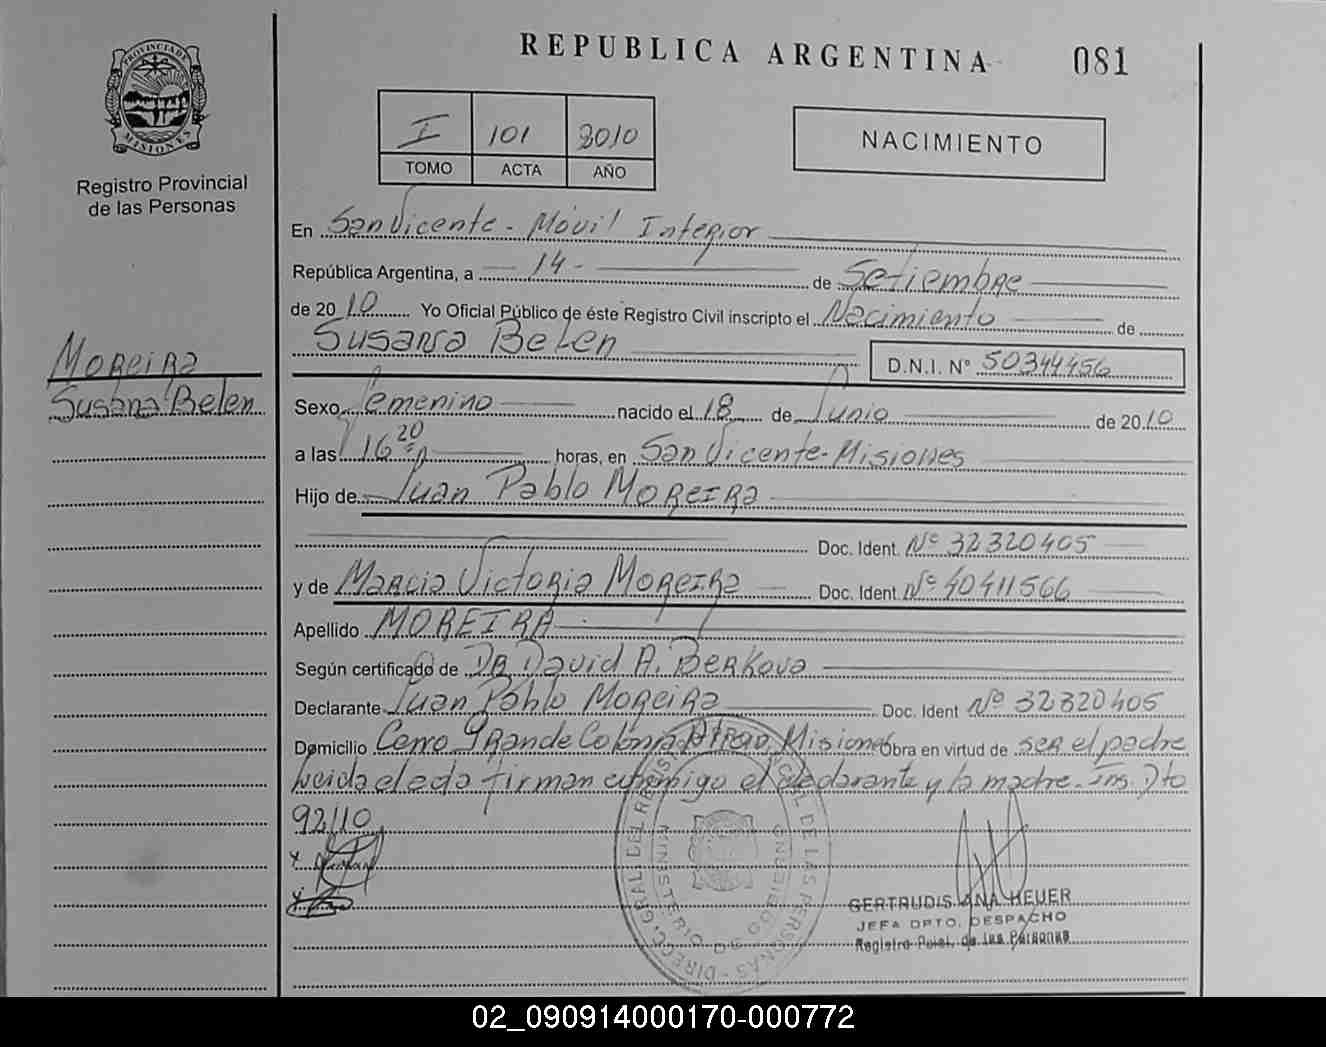 REPUBLICA ARGENTINA 081
PROVINCIA DE
MISIONES
Registro Provincial
de las Personas
I 101 2010
TOMO ACTA AÑO
NACIMIENTO
En San Vicente - Móvil Interior
República Argentina, a 14 - de Setiembre
de 2010 Yo Oficial Público de éste Registro Civil inscripto el Nacimiento de
Susana Belen
D.N.I. Nº 50344456
Moreira
Susana Belen
Sexo Femenino nacido el 18 de Junio de 2010
a las 16 20 horas, en San Vicente - Misiones
Hijo de Juan Pablo Moreira
Doc. Ident. Nº 32320405
y de Marcia Victoria Moreira Doc. Ident. Nº 40411566
Apellido MOREIRA
Según certificado de DR David A. Berkova
Declarante Juan Pablo Moreira Doc. Ident Nº 32320405
Domicilio Cerro Grande Colonia Misiones Obra en virtud de ser el padre
Leida el acta firman conmigo el declarante y la madre. Ins. Dto
92/10
x
x
DIRECC. GRAL. DEL REGISTRO PCIAL. DE LAS PERSONAS
MINISTERIO DE GOBIERNO
GERTRUDIS ANA HEUER
JEFA DPTO. DESPACHO
Registro Pcial. de las Personas
02_090914000170-000772